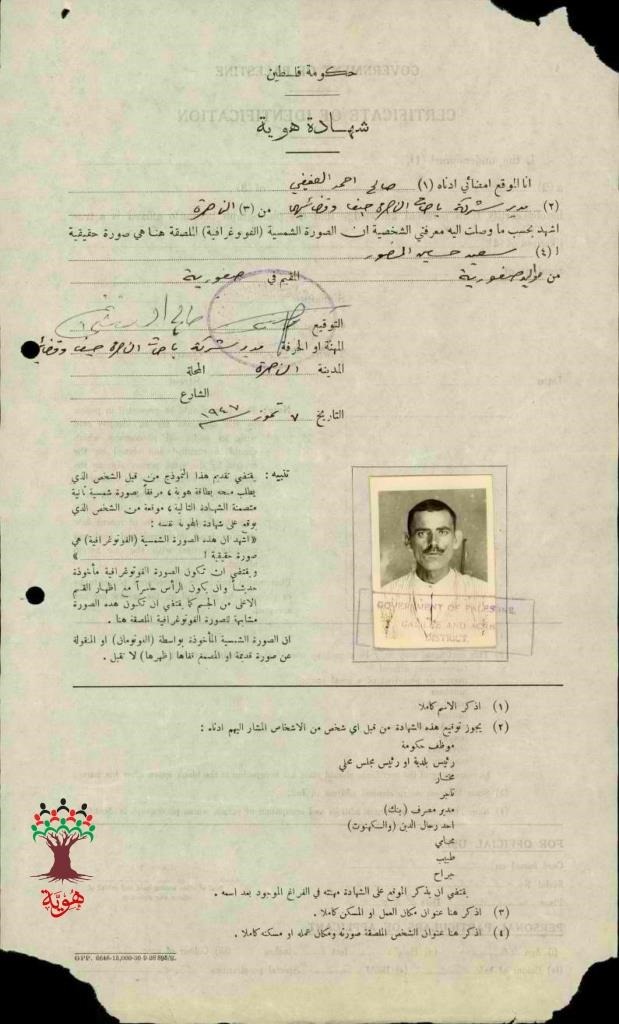 حكومة فلسطين
شهادة هوية
انا الموقع امضائي ادناه (١) صالح احمد العفيفي
(٢) مدير شركة باصات الناصرة حيفا وقضائيهما من (٣) الناصرة
اشهد بحسب ما وصلت اليه معرفتي الشخصية ان الصورة الشمسية (الفوتوغرافية) الملصقة هنا هي صورة حقيقية
ا (٤) سعيد حسين المنصور
من مواليد صفورية المقيم في صفورية
التوقيع
المهنة او الحرفة مدير شركة باصات الناصرة حيفا
المدينة الناصرة المحلة
الشارع
التاريخ ٧ تموز ١٩٤٧
تنبيه : يقتضي تقديم هذا النموذج من قبل الشخص الذي
يطلب منحه بطاقة هوية ، مرفقاً بصورة شمسية ثانية
متضمنة الشهادة التالية ، موقعة من الشخص الذي
يوقع على شهادة الهوية نفسه :
«اشهد ان هذه الصورة الشمسية (الفوتوغرافية) هي
صورة حقيقية ا »
ويقتضي ان تكون الصورة الفوتوغرافية مأخوذة
حديثاً وان يكون الرأس حاسراً مع اظهار القسم
الاعلى من الجسم كما يقتضي ان تكون هذه الصورة
مشابهة للصورة الفوتوغرافية الملصقة هنا .
ان الصورة الشمسية المأخوذة بواسطة (الفوتومان) او المنقولة
عن صورة قديمة او المصمغ قفاها (ظهرها) لا تقبل .
GOVERNMENT OF PALESTINE
GALILEE AND ACRE
DISTRICT
(١) اذكر الاسم كاملا
(٢) يجوز توقيع هذه الشهادة من قبل اي شخص من الاشخاص المشار اليهم ادناه :
موظف حكومة
رئيس بلدية او رئيس مجلس محلي
مختار
تاجر
مدير مصرف (بنك)
احد رجال الدين (والكهنوت)
محامي
طبيب
جراح
يقتضي ان يذكر الموقع على الشهادة مهنته في الفراغ الموجود بعد اسمه .
(٣) اذكر هنا عنوان مكان العمل او المسكن كاملا .
(٤) اذكر هنا عنوان الشخص الملصقة صورته ومكان عمله او مسكنه كاملا .
هوية